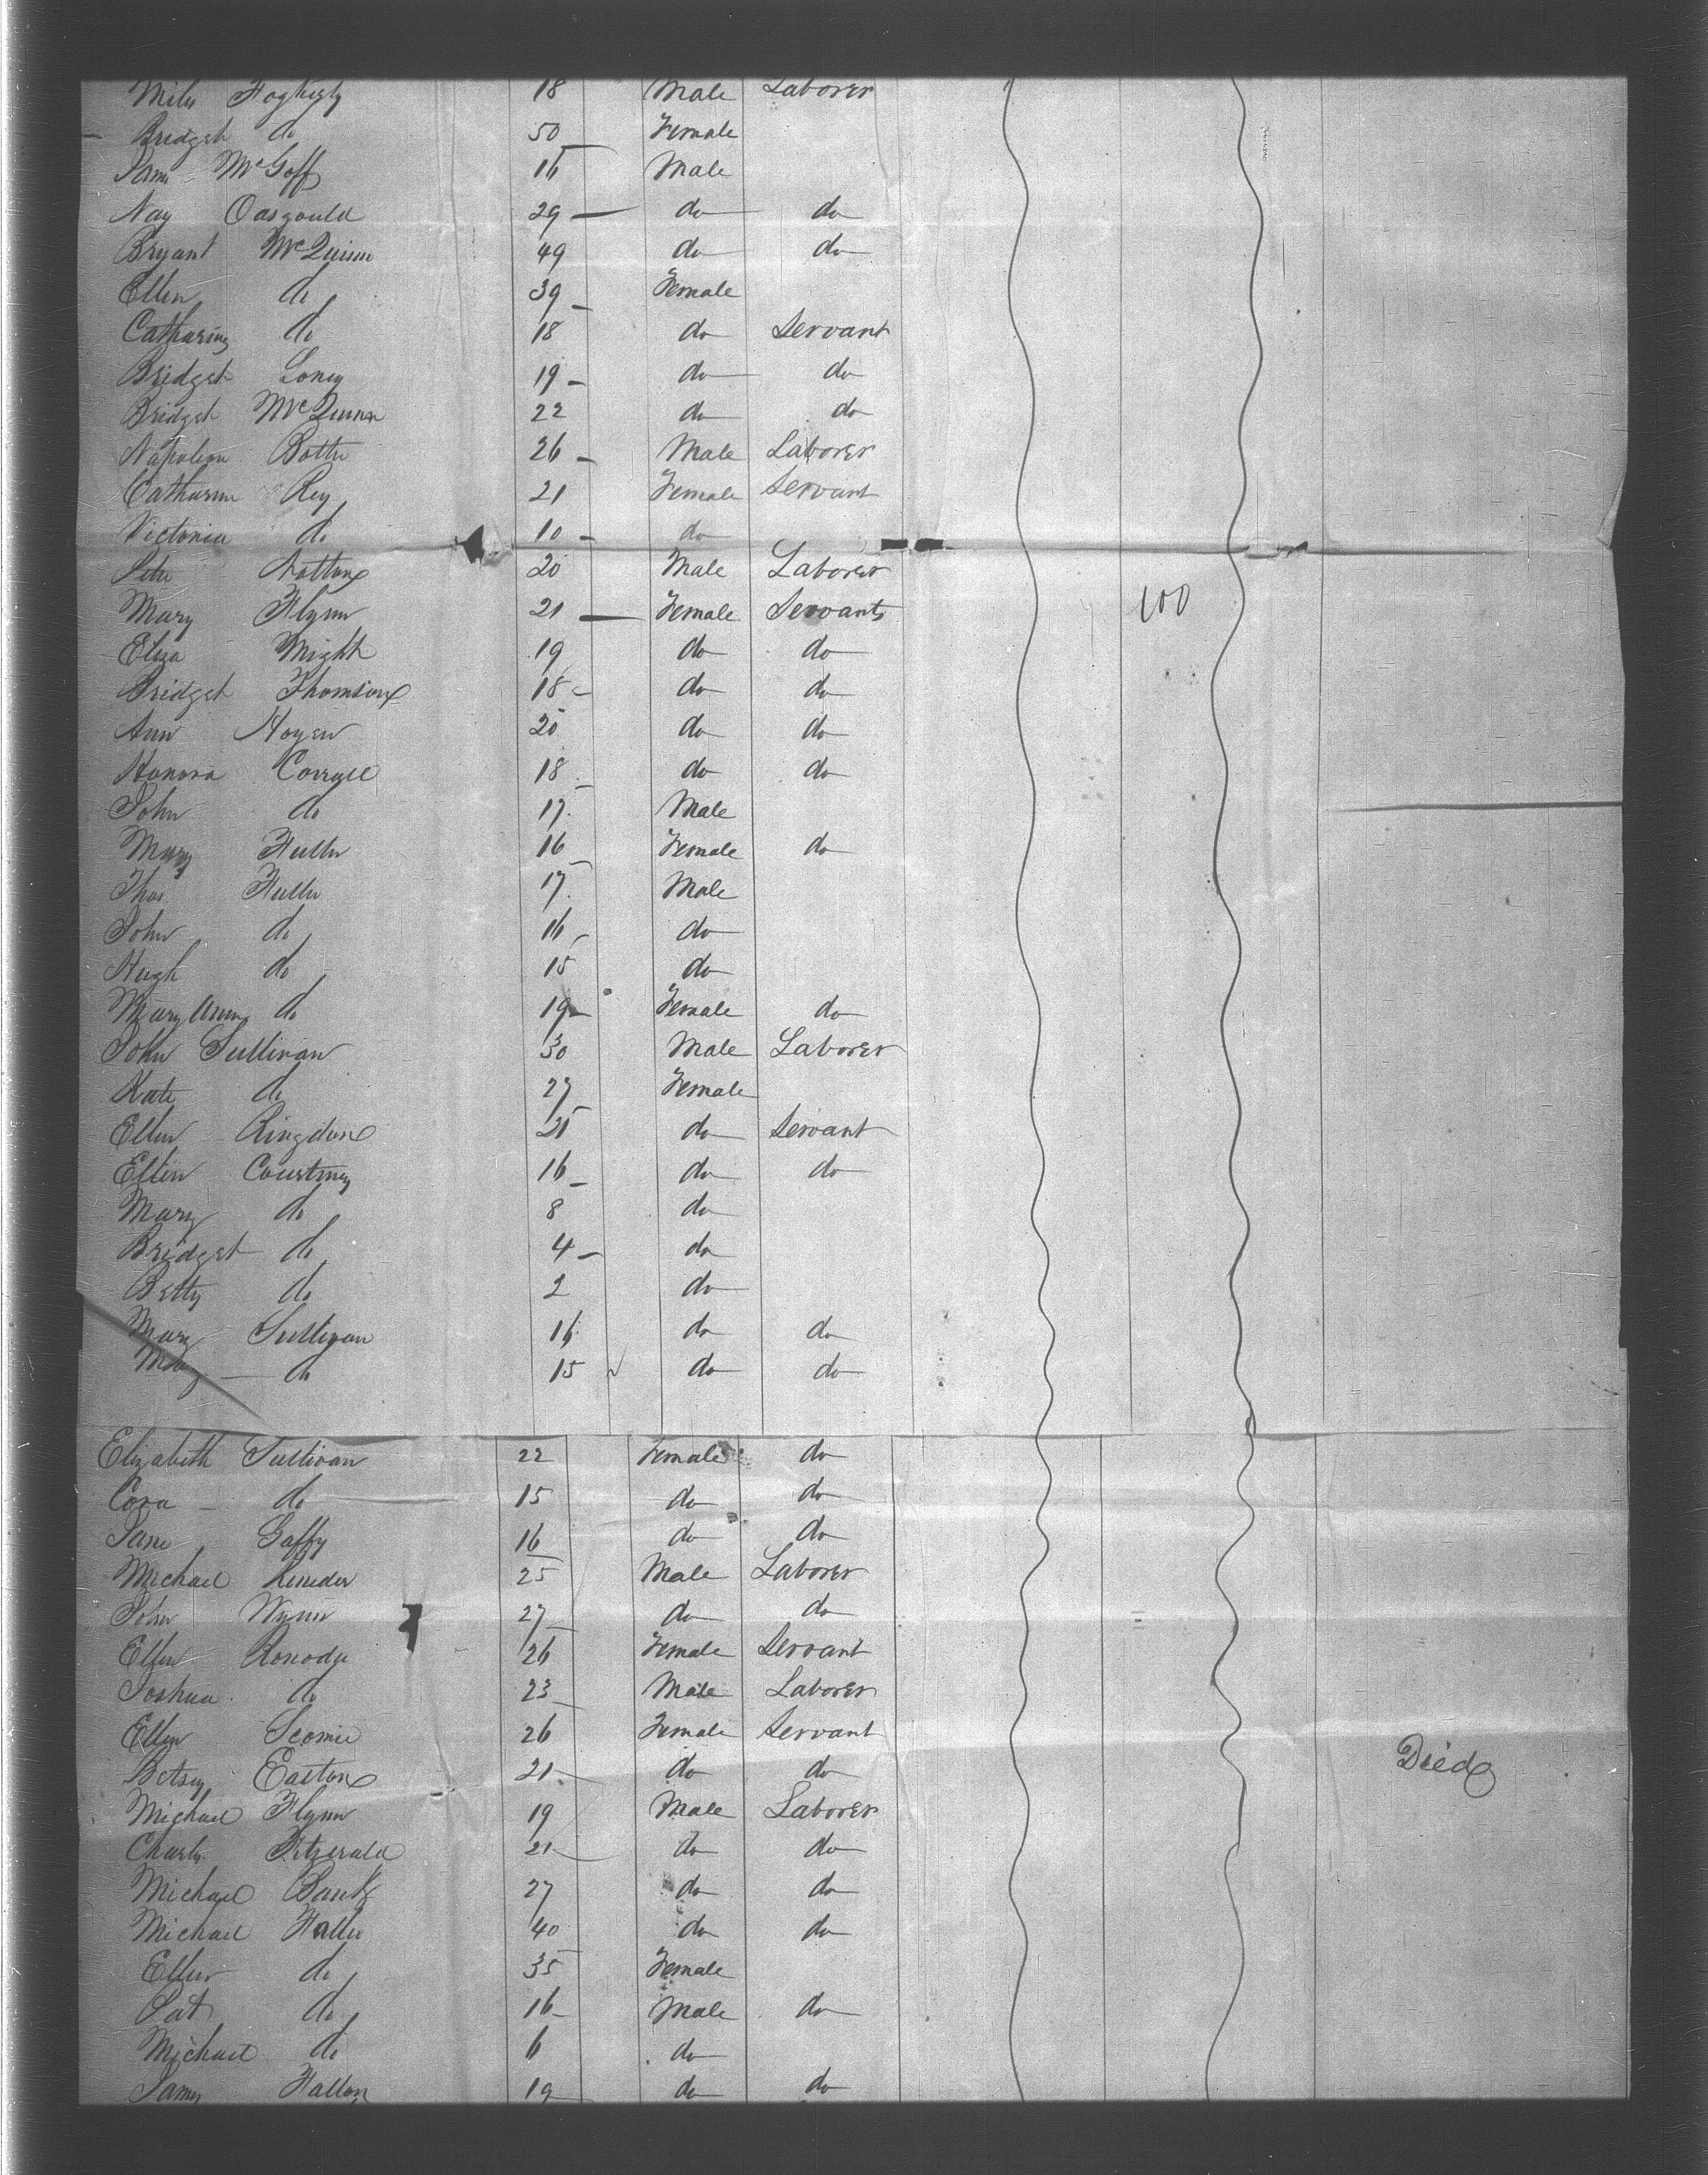 Miles Fogherty 18 Male Laborer
Bridget do 50 Female
Jams McGoff 16 Male
Nay Oasgould 29 do do
Bryant McQuinn 49 do do
Ellen do 39 Female
Catharine do 18 do Servant
Bridget Loney 19 do do
Bridget McQuinn 22 do do
Napoleon Botter 26 Male Laborer
Catharine Rey 21 Female Servant
Victoria do 10 do
20 Male Laborer
Mary Flynn 21 Female Servants 100
Eliza Might 19 do do
Bridget Thomson 18 do do
Ann 20 do do
Honora Corryll 18 do do
John do 17 Male
Mary Fuller 16 Female do
Thos Fuller 17 Male
John do 16 do
Hugh do 15 do
Mary Ann do 19 Female do
John Sullivan 30 Male Laborer
Kate do 27 Female
Ellen Ringdon 21 do Servant
Ellen Courtney 16 do do
Mary do 8 do
Bridget do 4 do
Betty do 2 do
Mary Sullivan 16 do do
May do 15 do do
Elizabeth Sullivan 22 Female do
Cora do 15 do do
Jane Gaffy 16 do do
Michael 25 Male Laborer
John Wynn 27 do do
Ellen 26 Female Servant
Joshua do 23 Male Laborer
Ellen 26 Female Servant
Betsey Easton 21 do do Died
Michael Flynn 19 Male Laborer
Charls Fitzerald 21 do do
Michael Bank 27 do do
Michael Haller 40 do do
Ellen do 35 Female
Pat do 16 Male do
Michael do 6 do
James Fallon 19 do do